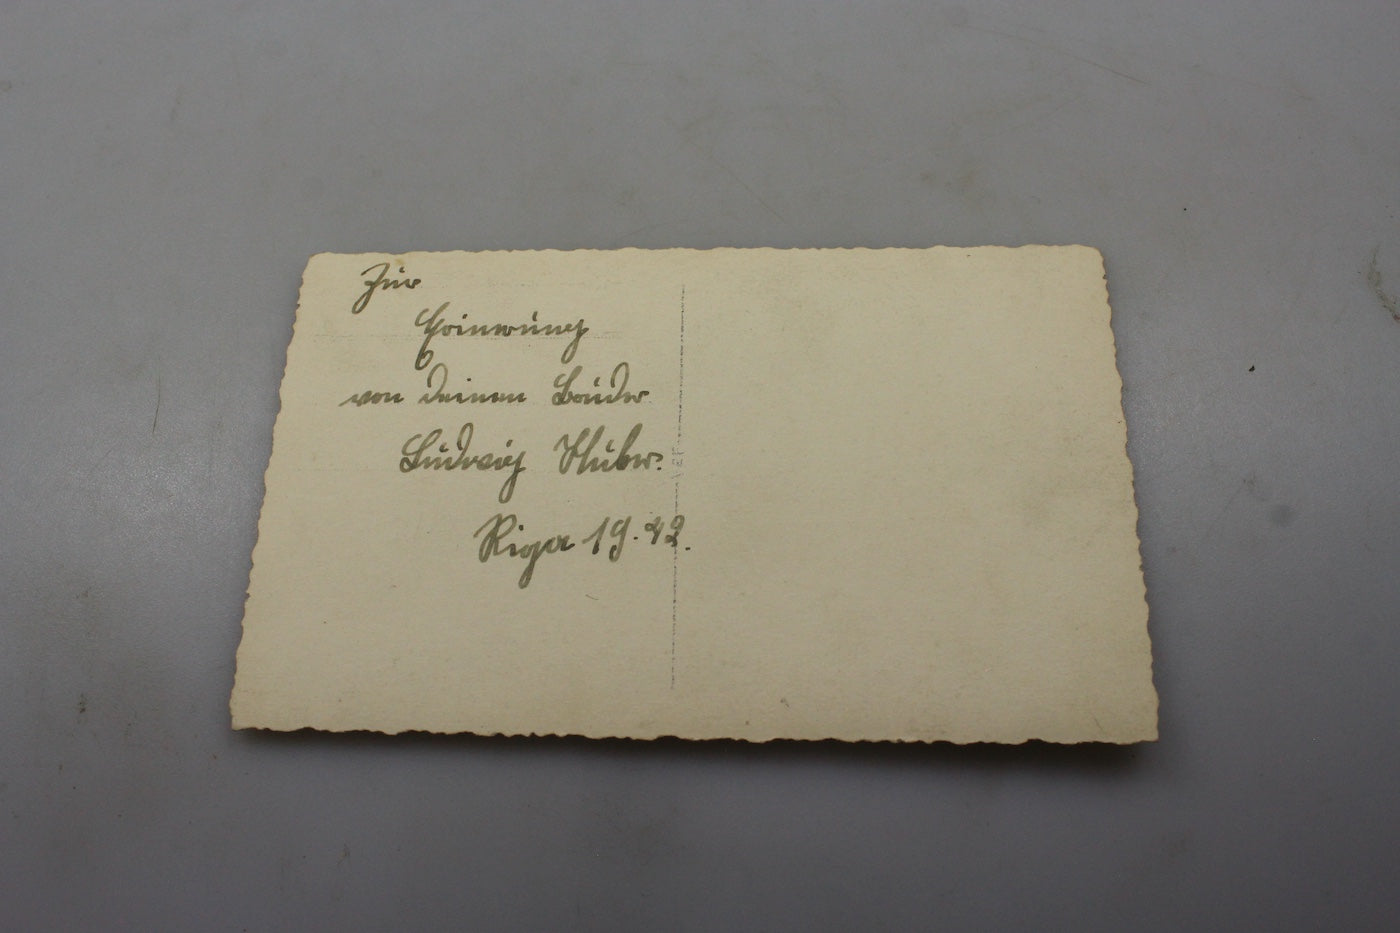 Zur
Erinerung
von deinen Bruder
Ludwig Huber.
Riga 19.42.